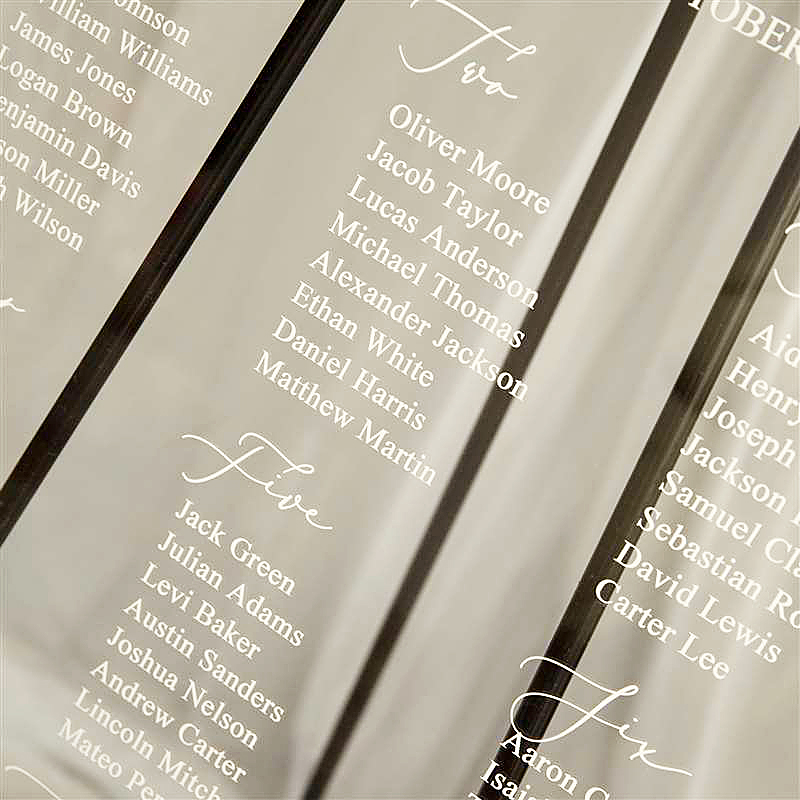 Johnson
William Williams
James Jones
Logan Brown
Benjamin Davis
Miller
Wilson
Two
Oliver Moore
Jacob Taylor
Lucas Anderson
Michael Thomas
Alexander Jackson
Ethan White
Daniel Harris
Matthew Martin
Five
Jack Green
Julian Adams
Levi Baker
Austin Sanders
Joshua Nelson
Andrew Carter
Lincoln Mitch
Mateo Per
TOBER
Aid
Henry
Joseph
Jackson
Samuel Cla
Sebastian Ro
David Lewis
Carter Lee
Six
Aaron
Isaia